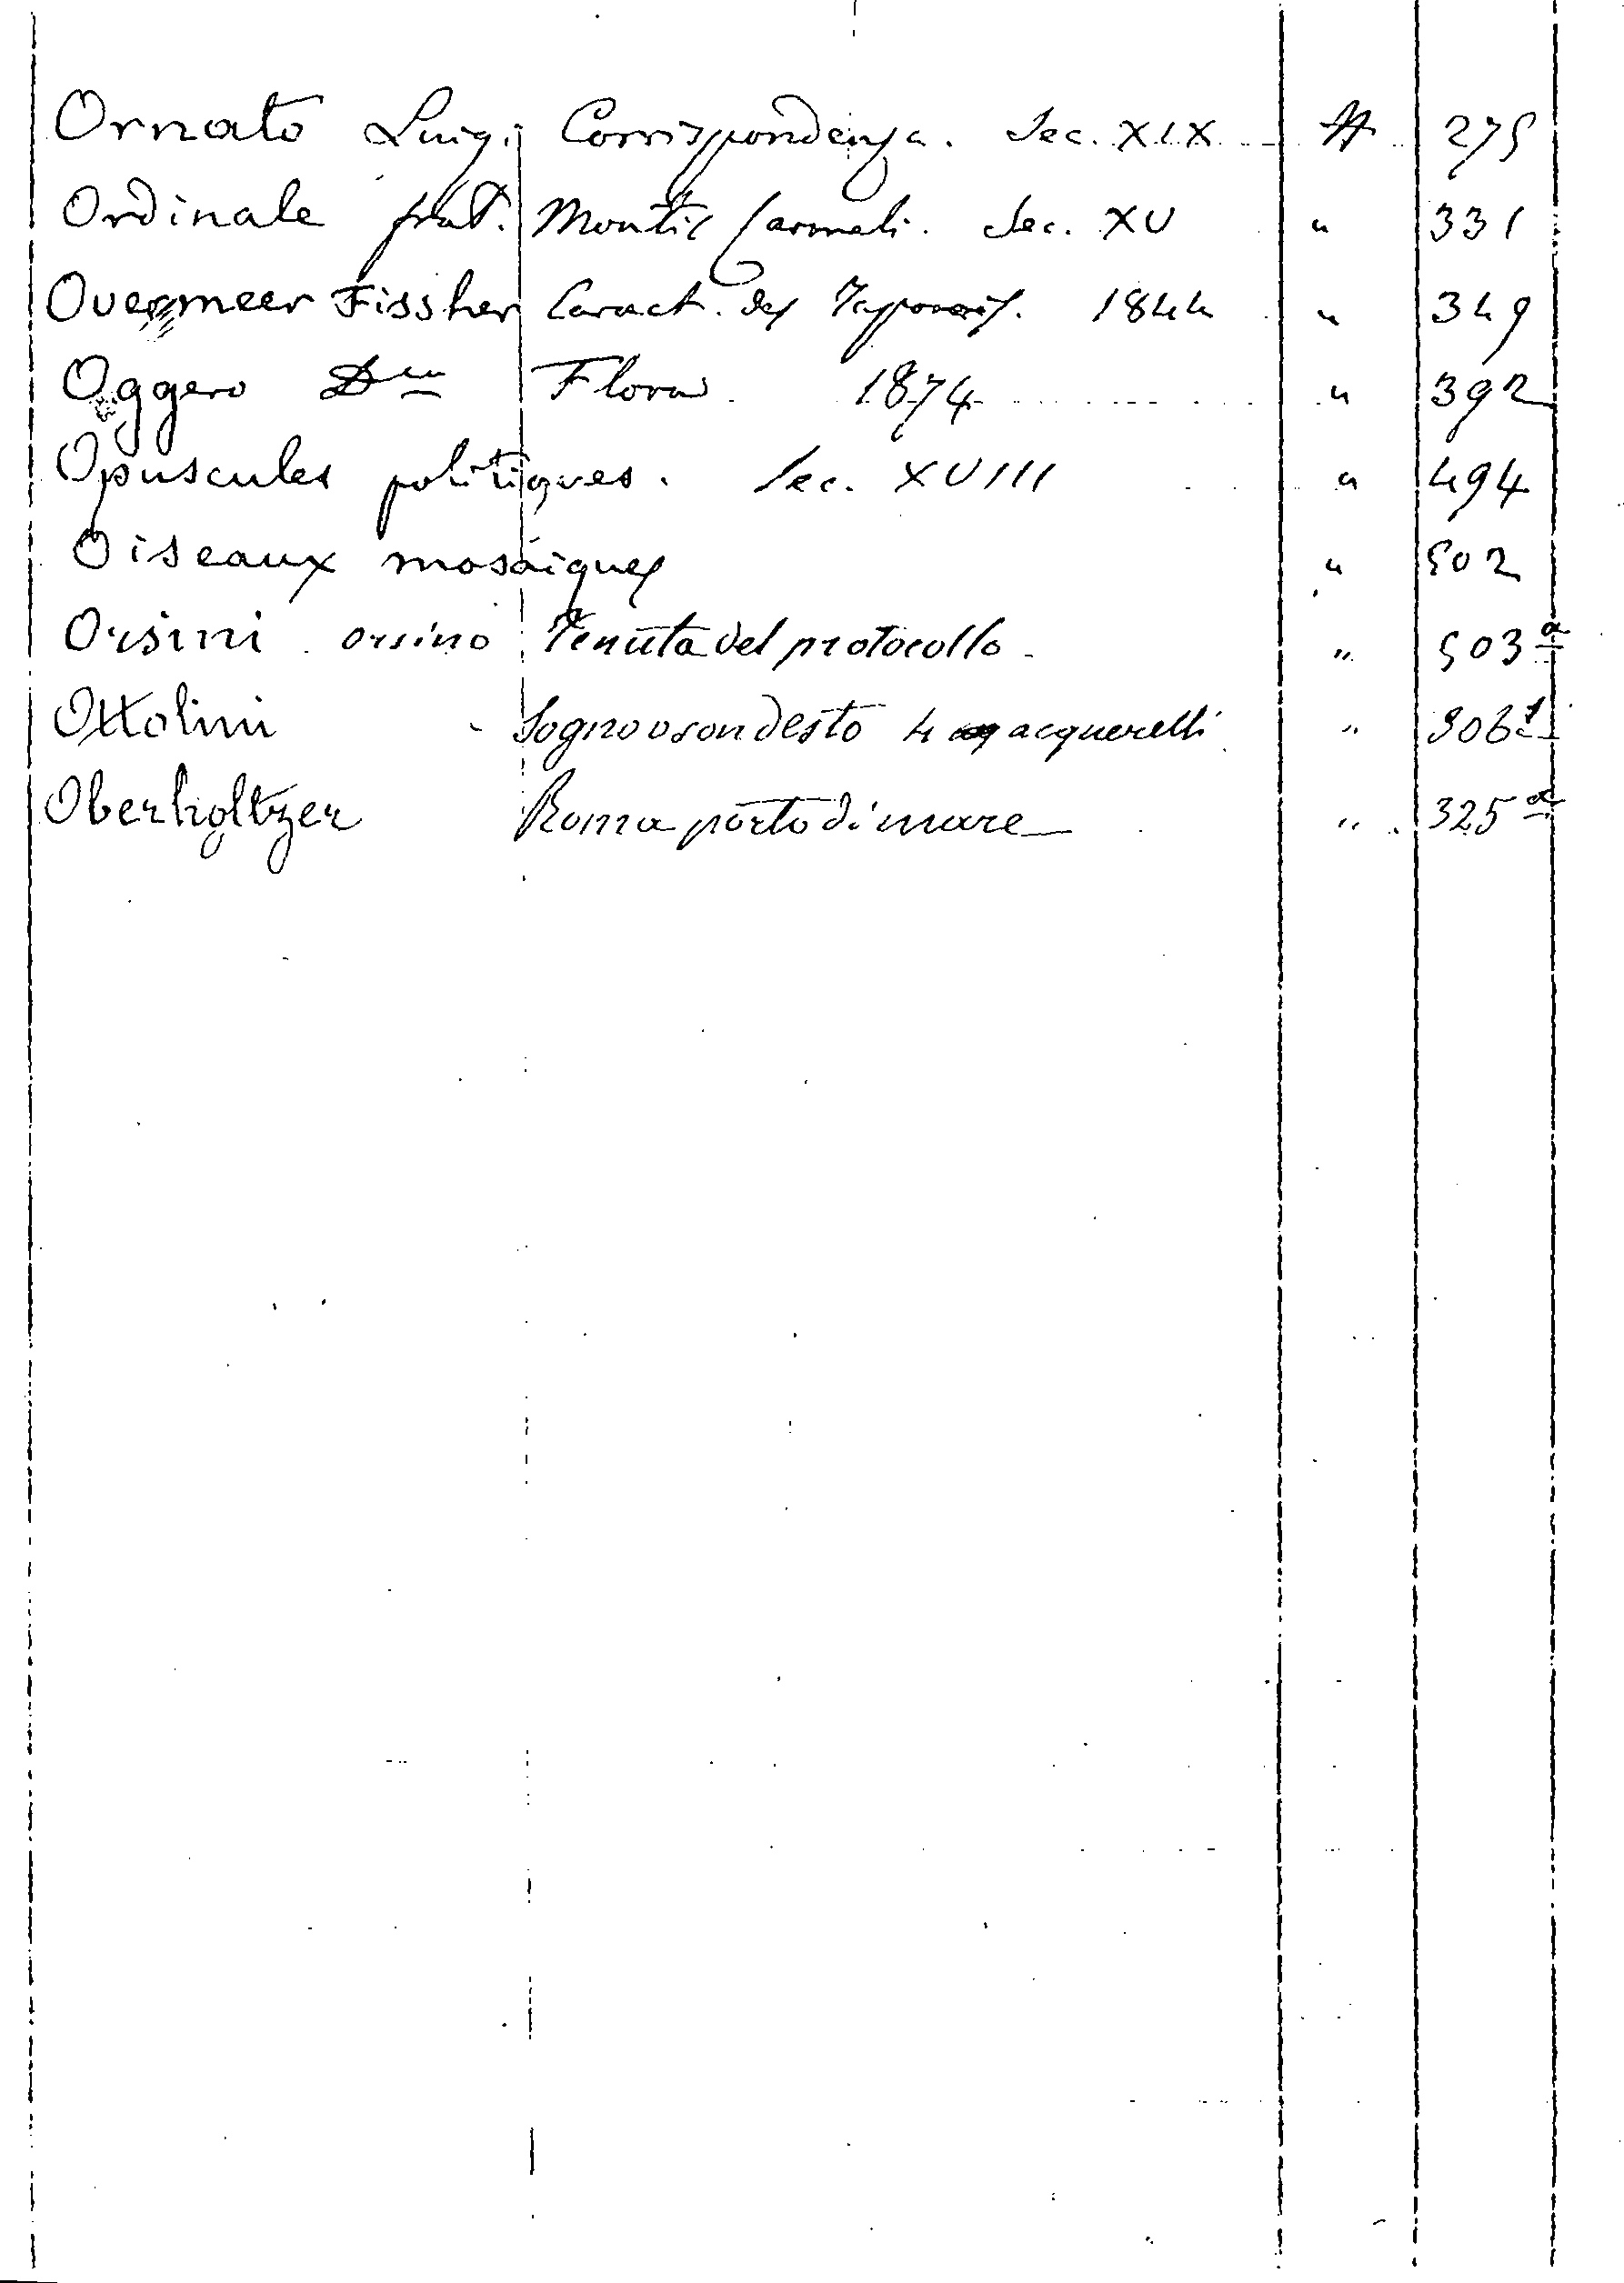 Ornato Luigi Corrispondenza. Sec. XIX 275
Ordinale frat. Montis Carmeli. Sec. XV " 331
Overmeer Fissher Caract. des Japonais. 1844 " 349
Oggero Dco Flora 1874 " 392
Opuscules politiques. Sec. XVIII " 494
Oiseaux mosaiques " 502
Orsini orsino Tenuta del protocollo " 503a
Ottolini - Sogno o son desto 4 acquerelli "
Oberholtzer Roma porto di mare " 325a